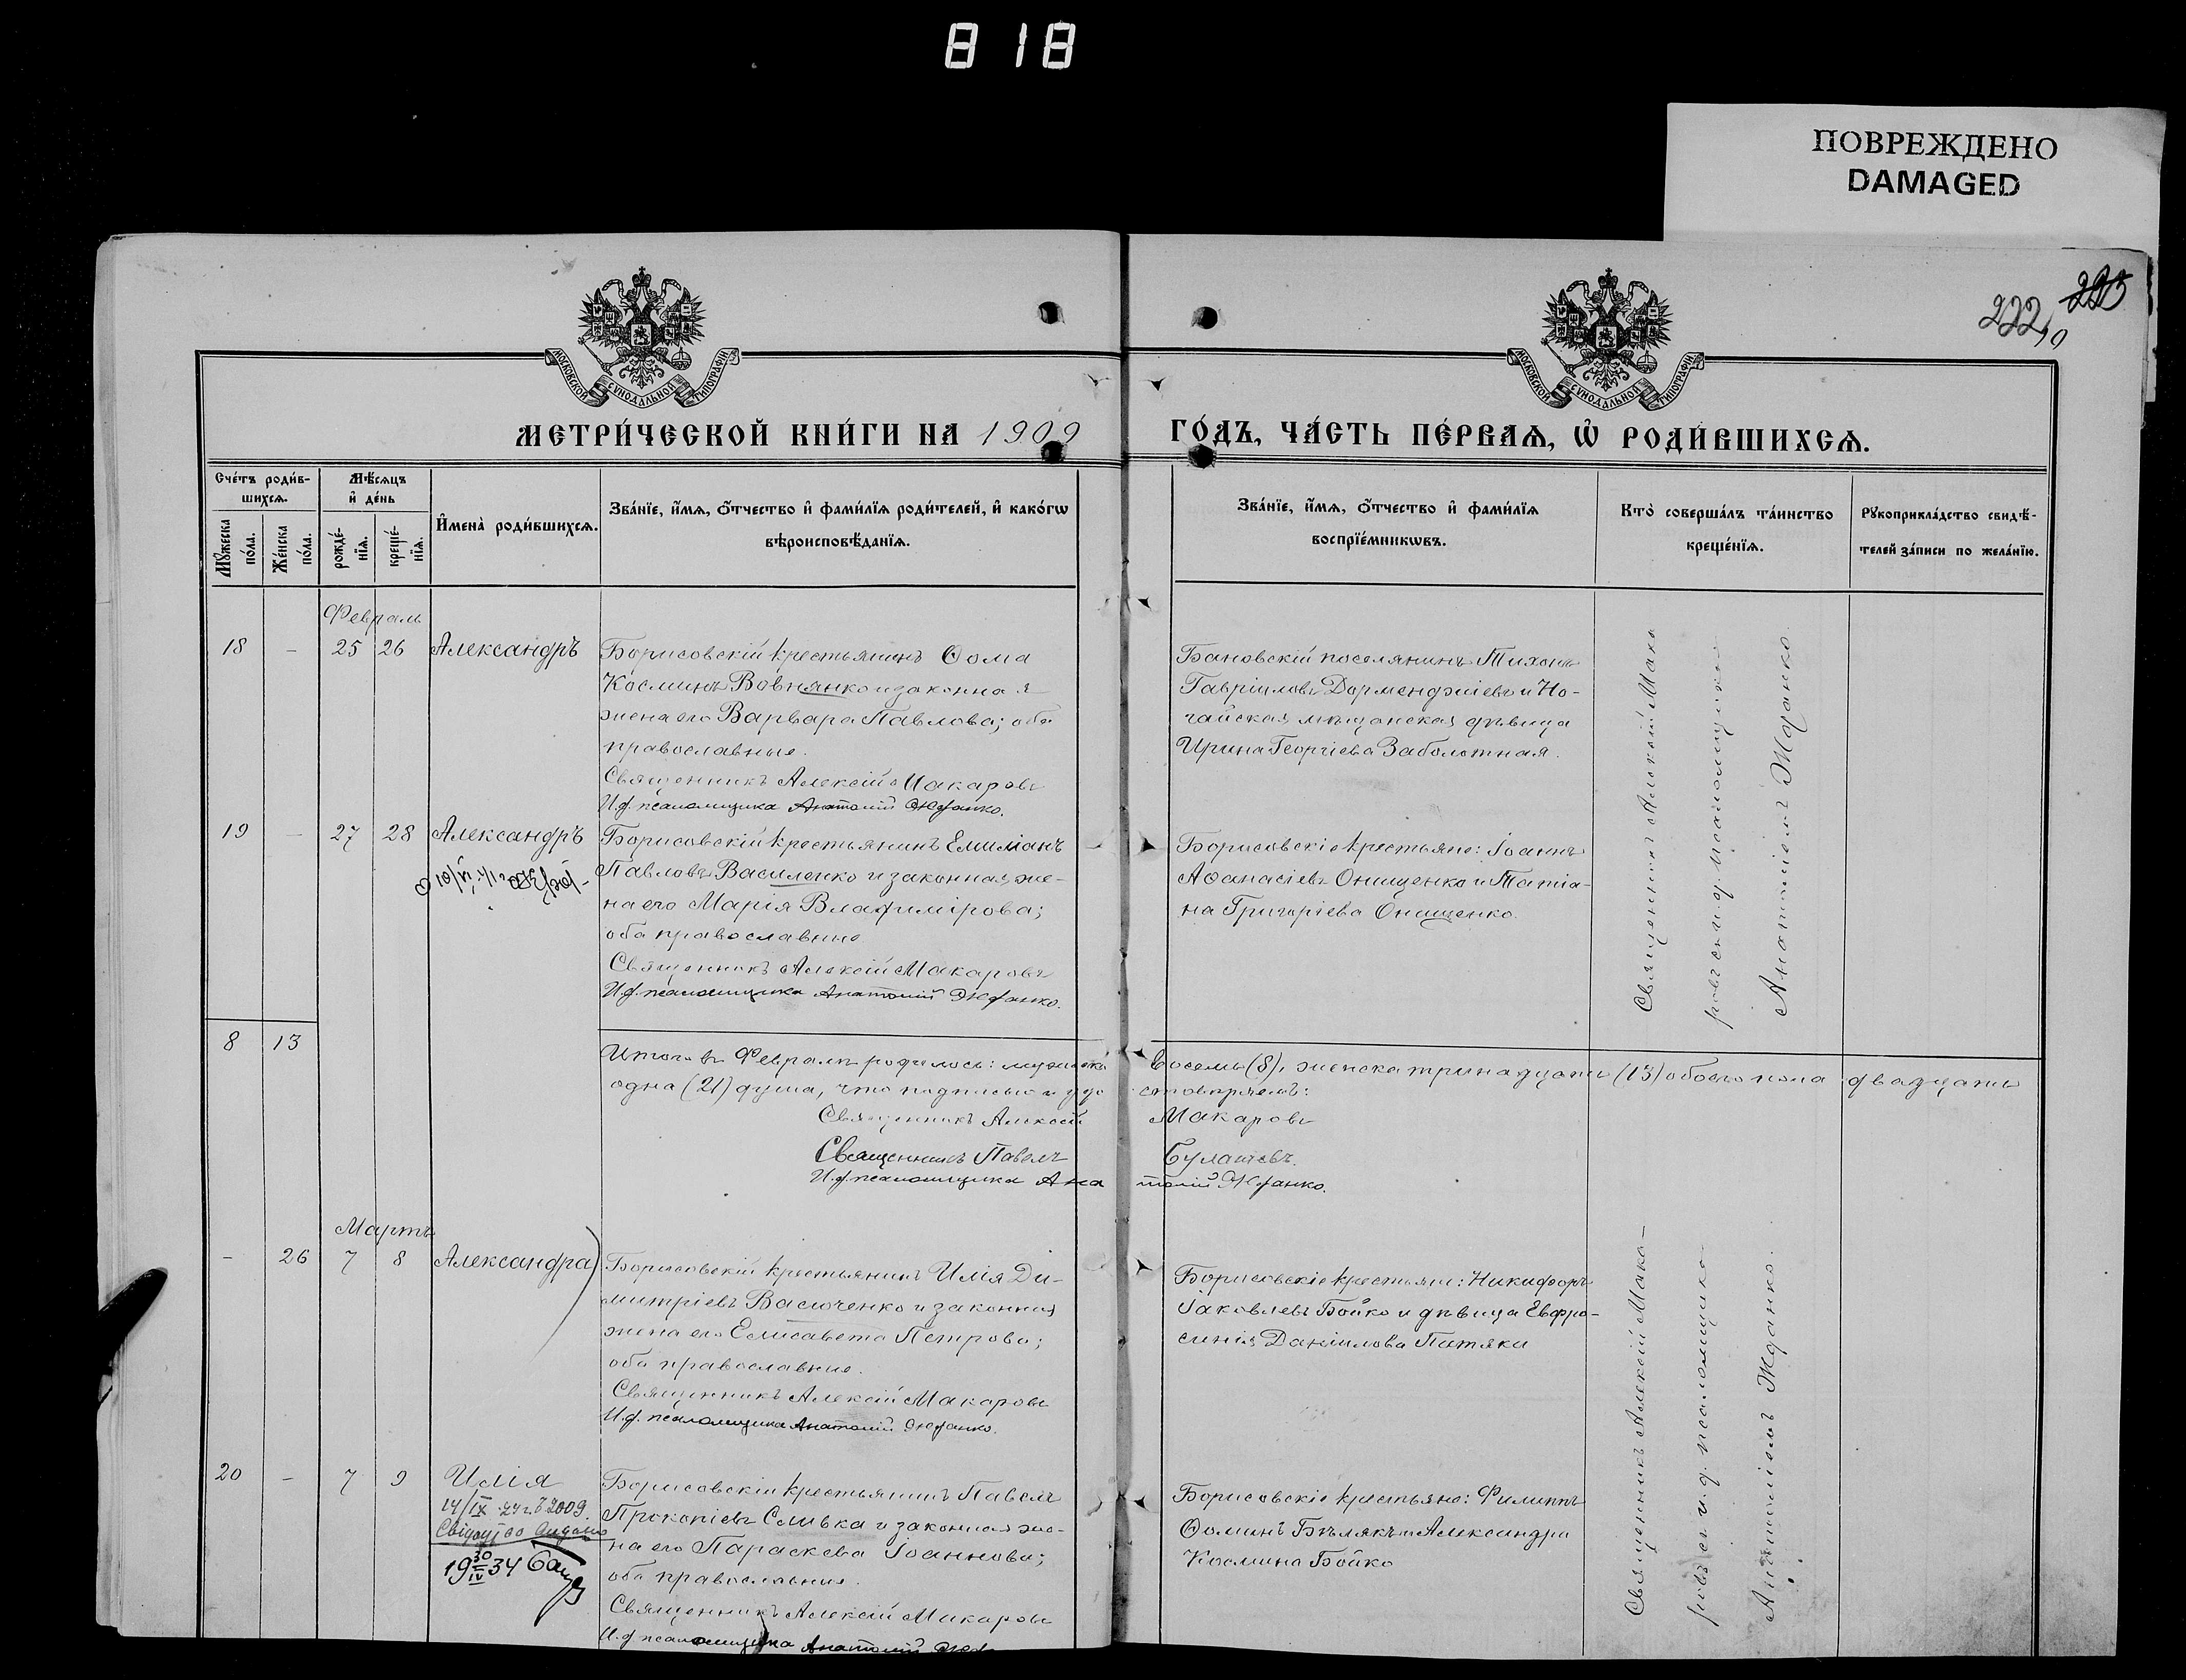 818
ПОВРЕЖДЕНО
DAMAGED
222
МОСКОВСКОЙ СѴНОДАЛЬНОЙ ТИПОГРАФІИ
МОСКОВСКОЙ СѴНОДАЛЬНОЙ ТИПОГРАФІИ
МЕТРИ́ЧЕСКОЙ КНИ́ГИ НА 1909 ГО́ДЪ, ЧА́СТЬ ПЕ́РВАѦ, Ѡ҆ РОДИ́ВШИХСѦ.
Сче́тъ роди́в-
шихсѧ.
Мꙋжеска по́ла.
Же́нска по́ла.
Мѣ́сѧцъ
и҆ де́нь
рожде́-
нїѧ.
креще́-
нїѧ.
И҆мена̀ роди́вшихсѧ.
Зва́нїе, и҆́мѧ, ѻ҆́тчество и҆ фами́лїѧ роди́телей, и҆ како́гѡ
вѣроисповѣ́данїѧ.
Зва́нїе, и҆́мѧ, ѻ҆́тчество и҆ фами́лїѧ
воспрїе́мникѡвъ.
Кто̀ соверша́лъ та́инство
креще́нїѧ.
Рꙋкоприкла́дство свидѣ́-
телей за́писи по жела́нїю.
Февраль
18 - 25 26 Александръ
Борисовскій крестьянинъ Ѳома
Косминъ Вовнянко и законная
жена его Варвара Павлова; оба
православные.
Священникъ Алексій Макаровъ
И.д. псаломщика Анатолій Жданко.
Бановскій поселянинъ Тихонъ
Гавріиловъ Дорменджіевъ и Но-
гайская мѣщанская дѣвица
Ирина Георгіева Заболотная.
Священникъ Алексій Мака
ровъ съ и. д. псаломщика
Анатоліемъ Жданко.
19 - 27 28 Александръ
Борисовскій крестьянинъ Емиліанъ
Павловъ Василенко и законная же-
на его Марія Владимірова;
оба православные
Священникъ Алексій Макаровъ
И.д. псаломщика Анатолій Жданко.
Борисовскіе крестьяне: Іоаннъ
Аѳанасіевъ Онищенко и Татіа-
на Григоріева Онищенко.
8 13
Итого въ Февралѣ родилось: мужеска восемь (8), женска тринадцать (13) обоего пола двадцать
одна (21) душа, что подписью и удо стовѣряемъ:
Священникъ Алексій Макаровъ
Священникъ Павелъ Булашевъ.
И.д. псаломщика Ана толій Жданко.
Мартъ
- 26 7 8 Александра
Борисовскій крестьянинъ Илія Ди-
митріевъ Васюченко и законная
жена его Елисавета Петрова;
оба православные.
Священникъ Алексій Макаровъ
И.д. псаломщика Анатолій Жданко.
Борисовскіе крестьяне: Никифоръ
Іаковлевъ Бойко и дѣвица Евфро-
синія Даніилова Питяки
Священникъ Алексій Мака-
ровъ съ и. д. псаломщика
Анатоліемъ Жданко.
20 - 7 9 Илія
14/IX 2009.
19 30/IV 34
Борисовскій крестьянинъ Павелъ
Прокопіевъ Сливка и законная же-
на его Параскева Іоаннова;
оба православные.
Священникъ Алексій Макаровъ
И.д. псаломщика Анатолій
Борисовскіе крестьяне: Филиппъ
Ѳоминъ Бѣлякъ и Александра
Космина Бойко